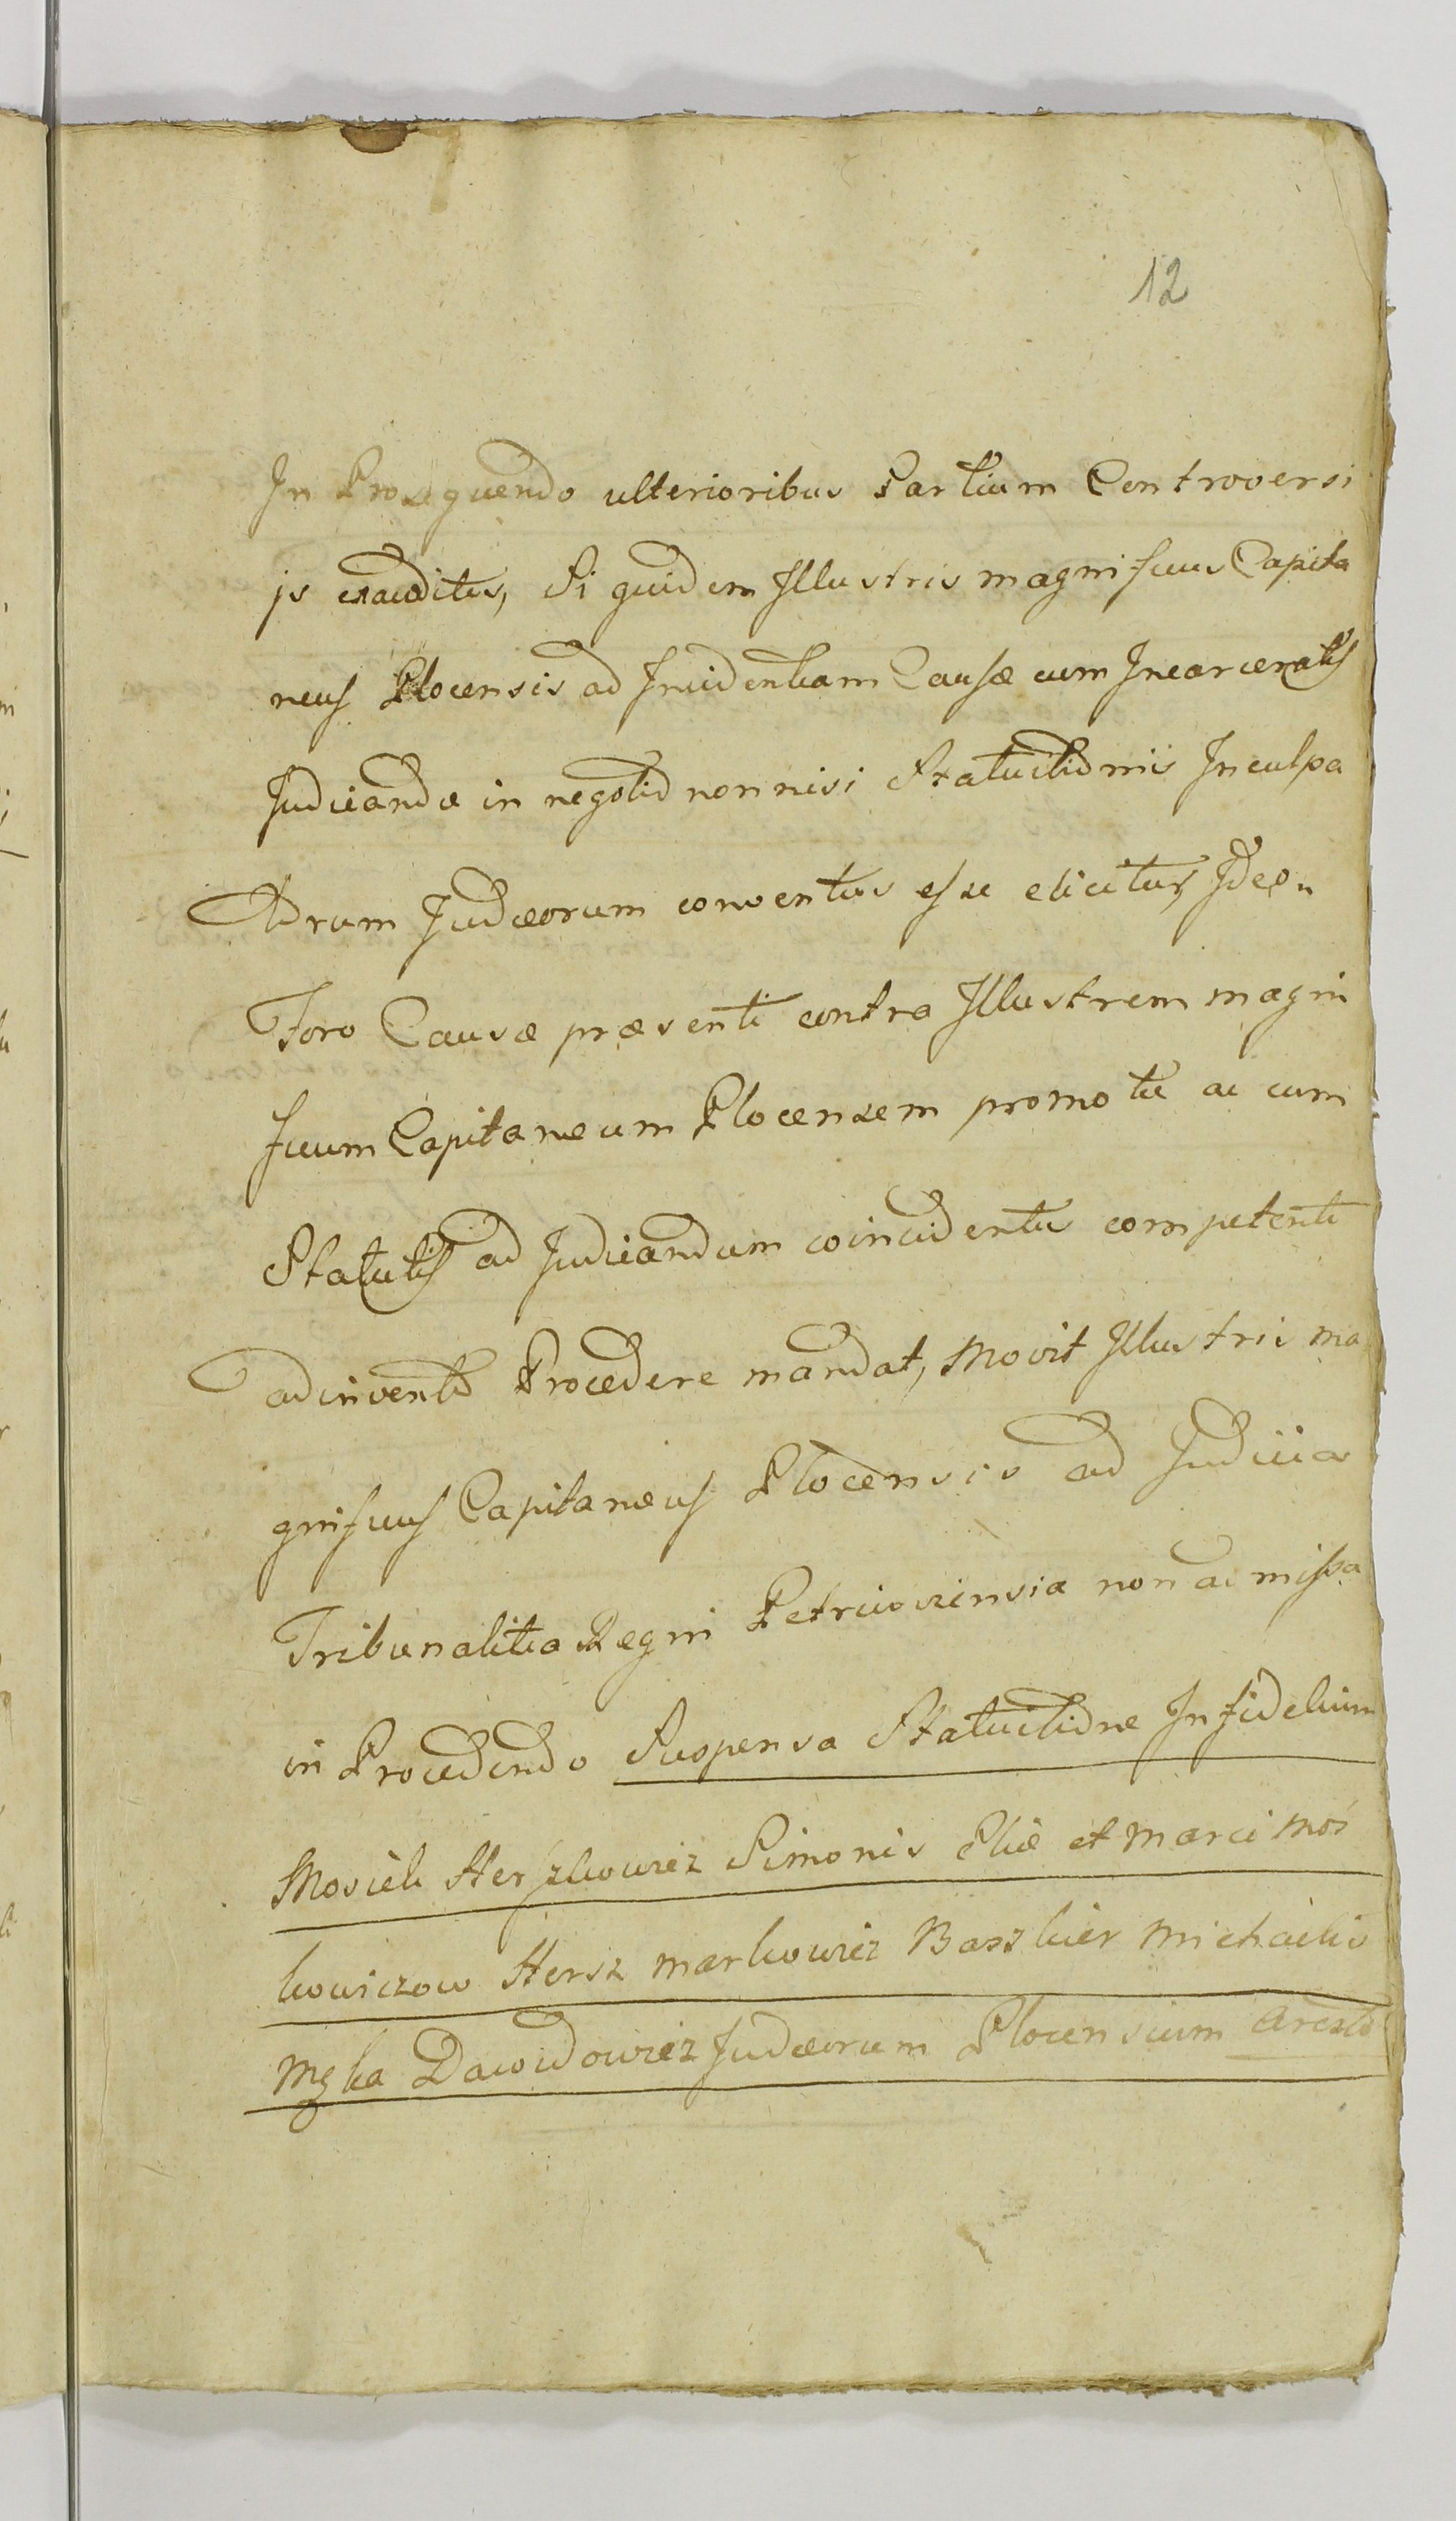 12
In Prosequendo ulterioribus Partium Controversi
js exauditis, Si quidem Illustris magnificus Capita
neus Plocensis ad Incidentiam Causæ cum Incarceratis
Judicandæ in negotio non nisi Statuitionis Inculpa
torum Judæorum conventus esse elicitur, Ideo
Foro Causæ præsenti contra Illustrem magni
ficum Capitaneum Plocensem promotæ ac cum
Statutis ad Judicandum coincidentis competenti
adinvento Procedere mandat, Movit Illustris ma
gnificus Capitaneus Plocensis ad Judicia
Tribunalitia Regni Petricoviensia non admissa
in Procedendo Suspensa Statuitione Infidelium
Mosiek Herszkowicz Simonis Eliæ et Marci Moś
kowiczow Hersz Markowicz Baszkier Michaelis
Dawidowicz Judæorum Plocensium